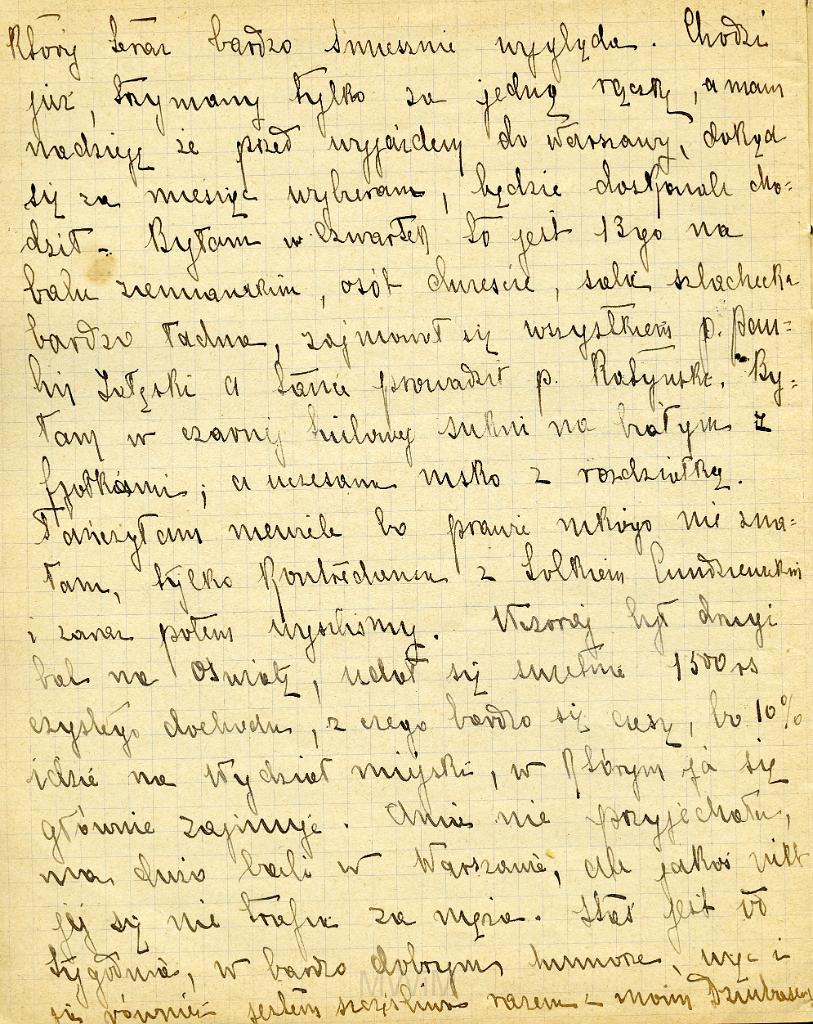 który teraz bardzo śmiesznie wygląda. Chodzi
już, trzymany tylko za jedną rączkę, a mam
nadzieję że przed wyjazdem do Warszawy, dokąd
się za miesiąc wybieram, będzie doskonale cho=
dził. Byłam w Czwartek to jest 13go na
balu ziemiańskim, osób dwieście, sala szlachecka
bardzo ładna, zajmował się wszystkiem p. Pau=
lin a tańce prowadził p. By=
łam w czarnej tiulowej sukni na białym z
fjołkami; a uczesana nisko z rozdziałką.
Tańczyłam niewiele bo prawie nikogo nie zna=
łam, tylko Kontredansa z
i zaraz potem wyszliśmy. Wczoraj był drugi
bal na Oświatę, udał się świetnie 1500 rs
czystego dochodu, z czego bardzo się cieszę, bo 10%
idzie na Wydział miejski, w którym ja się
głównie zajmuję. Ania nie przyjechała,
ma dużo bali w Warszawie, ale jakoś nikt
jej się nie trafia za męża. Staś jest od
tygodnia, w bardzo dobrym humorze, więc i
ja również jestem szczęśliwa razem z moim
MWM